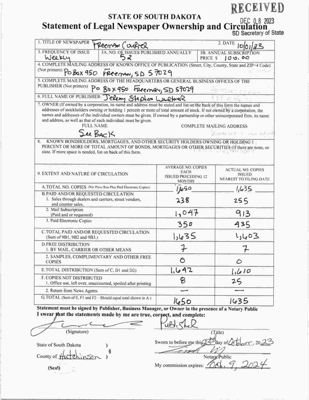 RECEIVED
DEC 08 2023
SD Secretary of State
STATE OF SOUTH DAKOTA
Statement of Legal Newspaper Ownership and Circulation
1. TITLE OF NEWSPAPER
Freeman Courier
2. DATE
10/01/23
3. FREQUENCY OF ISSUE
Weekly
3A. NO. OF ISSUES PUBLISHED ANNUALLY
52
3B. ANNUAL SUBSCRIPTION
PRICE $
4. COMPLETE MAILING ADDRESS OF KNOWN OFFICE OF PUBLICATION (Street, City, County, State and ZIP+4 Code)
(Not printers)
PO Box 950 Freeman, SD 57029
5. COMPLETE MAILING ADDRESS OF THE HEADQUARTERS OR GENERAL BUSINESS OFFICES OF THE
PUBLISHER (Not printers)
PO Box 950 Freeman, SD 57029
6. FULL NAME OF PUBLISHER
Jeremy Stephen Waltner
7. OWNER (If owned by a corporation, its name and address must be stated and list on the back of this form the names and
addresses of stockholders owning or holding 1 percent or more of total amount of stock. If not owned by a corporation, the
names and addresses of the individual owners must be given. If owned by a partnership or other unincorporated firm, its name
and address, as well as that of each individual must be given.
FULL NAME
COMPLETE MAILING ADDRESS
See Back
8. KNOWN BONDHOLDERS, MORTGAGES, AND OTHER SECURITY HOLDERS OWNING OR HOLDING 1
PERCENT OR MORE OF TOTAL AMOUNT OF BONDS, MORTGAGES OR OTHER SECURITIES (If there are none, so
state. If more space is needed, list on back of this form.
9. EXTENT AND NATURE OF CIRCULATION
AVERAGE NO. COPIES
EACH
ISSUED PRECEDING 12
MONTHS
ACTUAL NO. COPIES
ISSUED
NEAREST TO FILING DATE
A. TOTAL NO. COPIES
1,650
1,635
B. PAID AND/OR REQUESTED CIRCULATION
1. Sales through dealers and carriers, street vendors,
and counter sales
238
255
2. Mail Subscription
(Paid and or requested)
1,047
913
3. Paid Electronic Copies
350
435
C. TOTAL PAID AND/OR REQUESTED CIRCULATION
(Sum of 9B1, 9B2 and 9B3.)
1,635
1,603
D. FREE DISTRIBUTION
1. BY MAIL, CARRIER OR OTHER MEANS
7
7
2. SAMPLES, COMPLIMENTARY AND OTHER FREE
COPIES
0
0
E. TOTAL DISTRIBUTION (Sum of C, D1 and D2)
1,642
1,610
F. COPIES NOT DISTRIBUTED
1. Office use, left over, unaccounted, spoiled after printing
8
25
2. Return from News Agents
G. TOTAL (Sum of E, F1 and F2 - Should equal sum shown in A)
1650
1635
Statement must be signed by Publisher, Business Manager, or Owner in the presence of a Notary Public
I swear that the statements made by me are true, correct, and complete:
Publisher
(Signature)
(Title)
State of South Dakota )
Sworn to before me this
§
County of Hutchinson )
Notary Public
(Seal)
My commission expires: 9, 2024